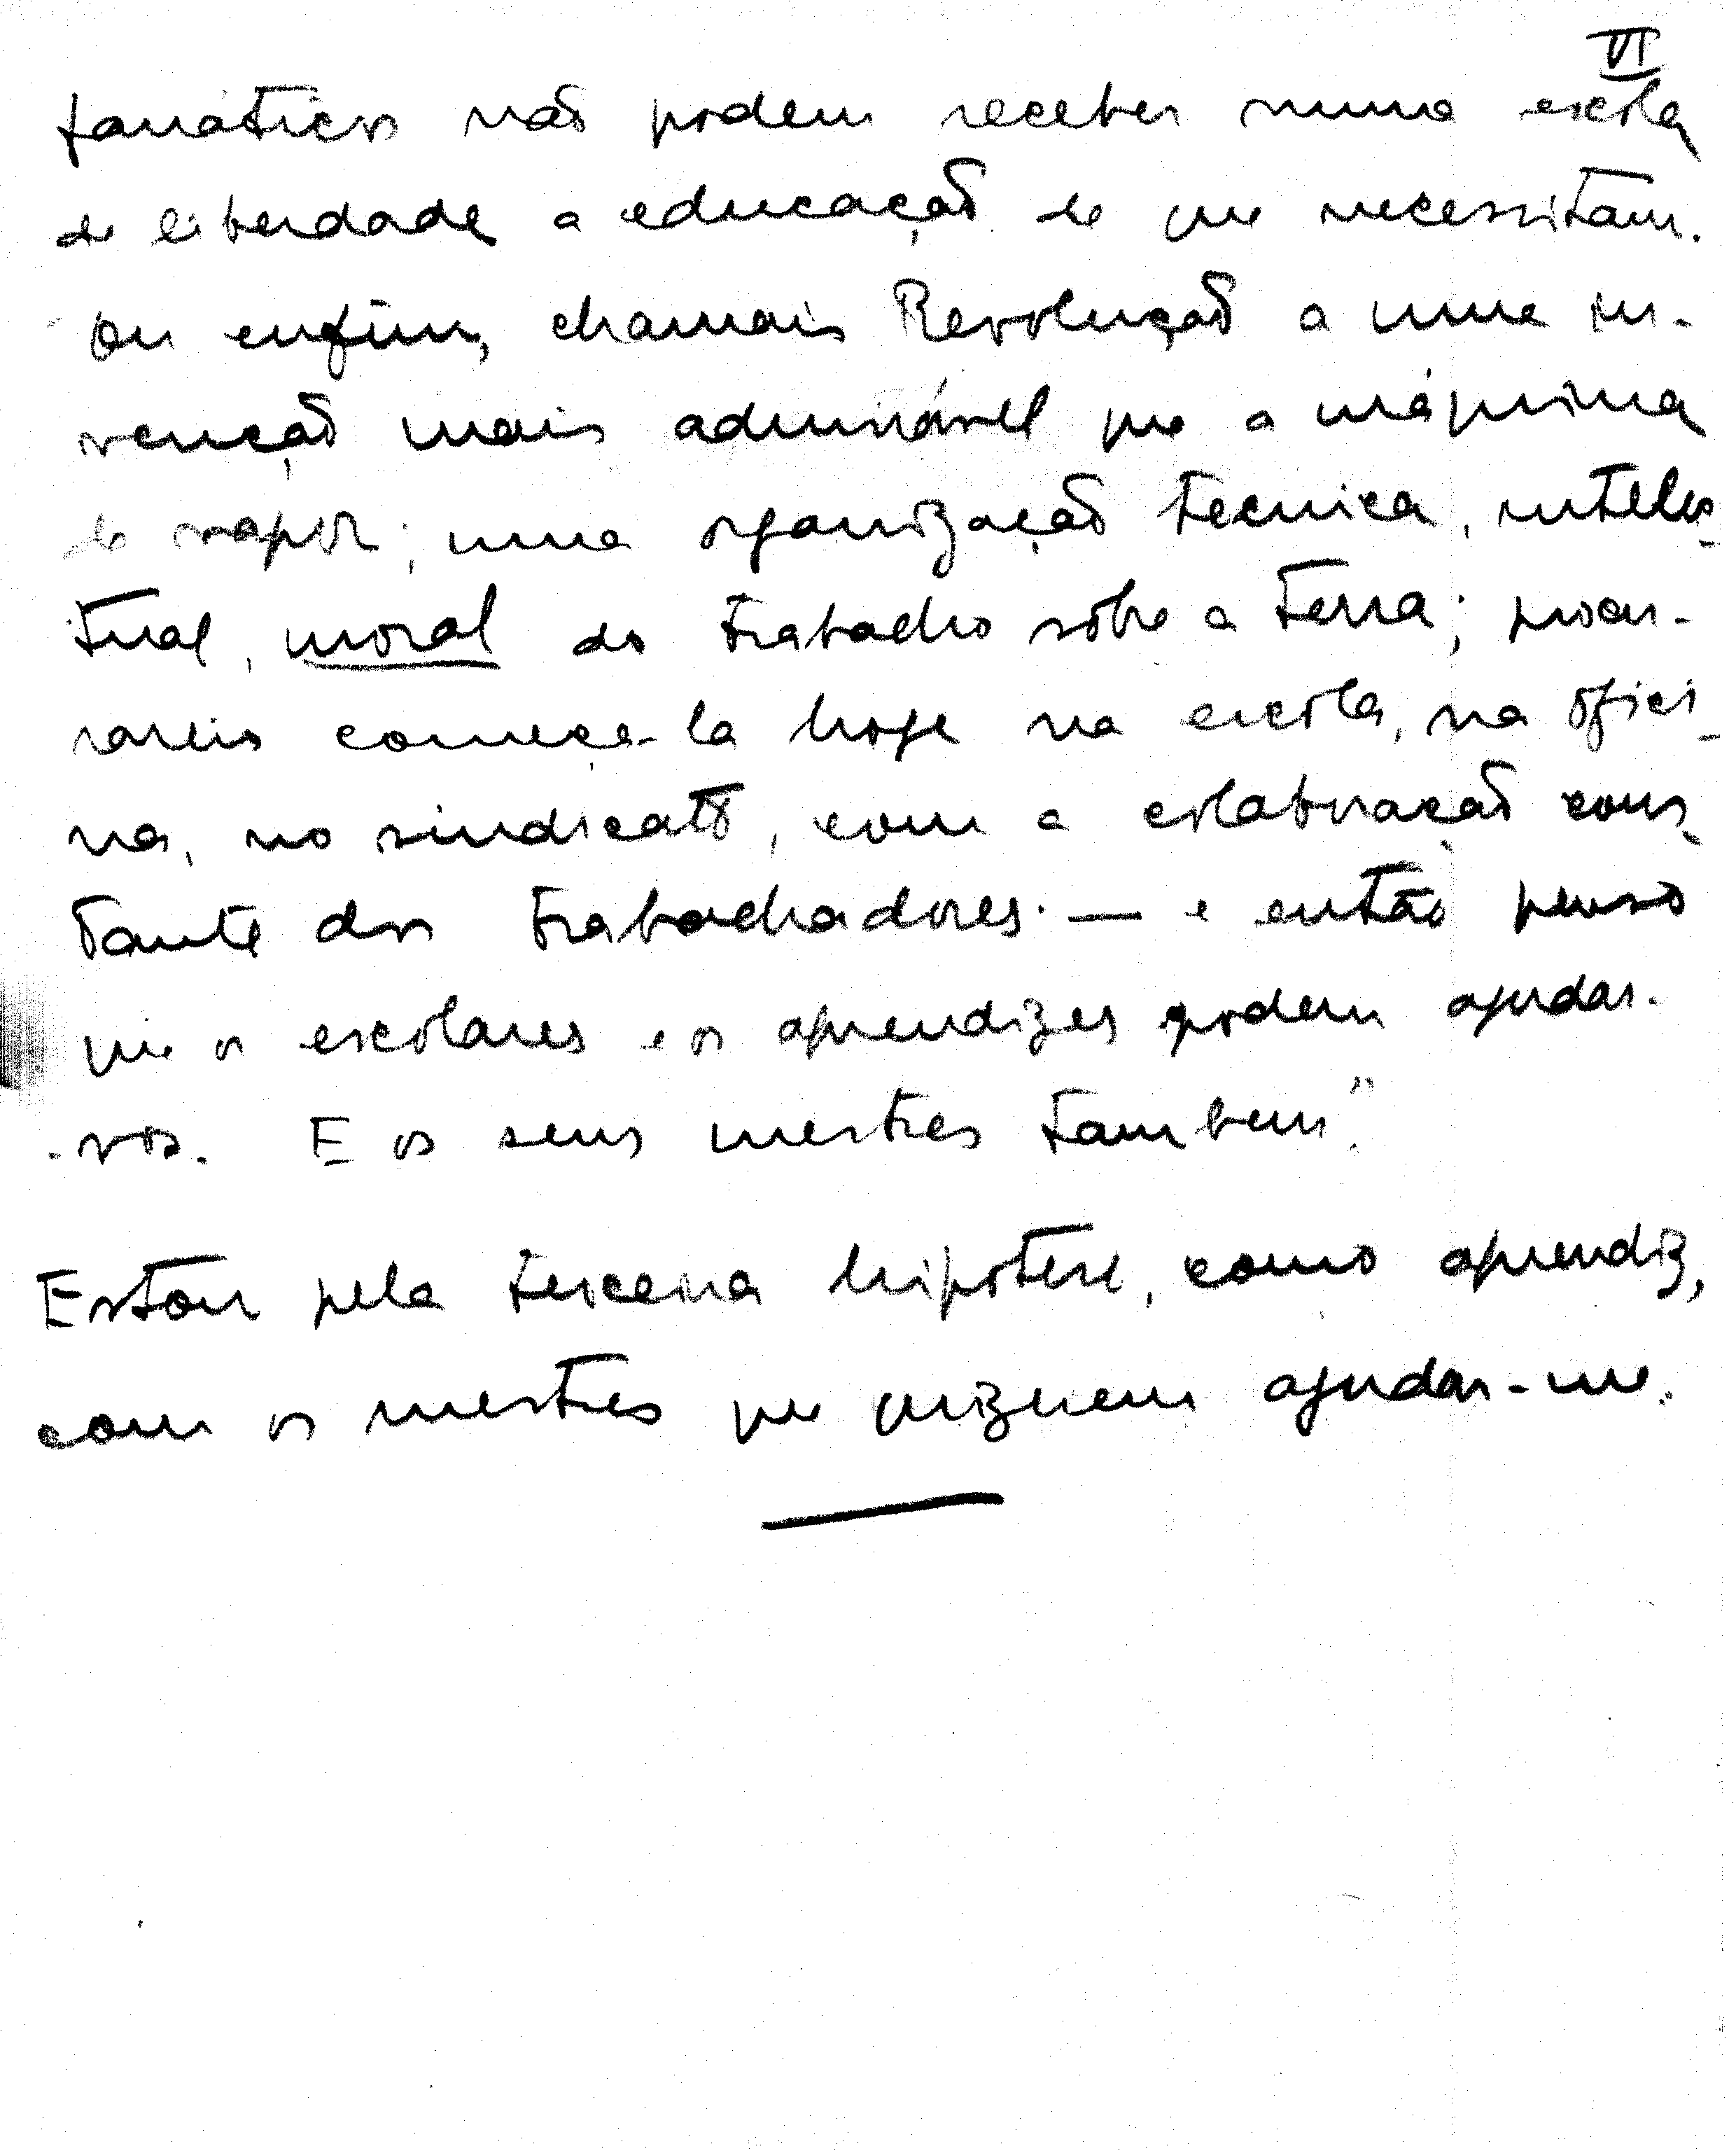 VI
fanáticos não podem receber numa escola
de liberdade a educação de que necessitam.
Ou enfim, chamais Revolução a uma in-
venção mais admirável que a máquina
de vapor; uma organização tecnica, intelec-
tual, moral do trabalho sôbre a terra; procu-
rareis começa-la hoje na escola, na ofici-
na, no sindicato, com a colaboração cons-
tante dos trabalhadores. — e então penso
que os escolares e os aprendizes podem ajudar-
-vos. E os seus mestres tambem".
Estou pela terceira hipótese, como aprendiz,
com os mestres que quizerem ajudar-me.